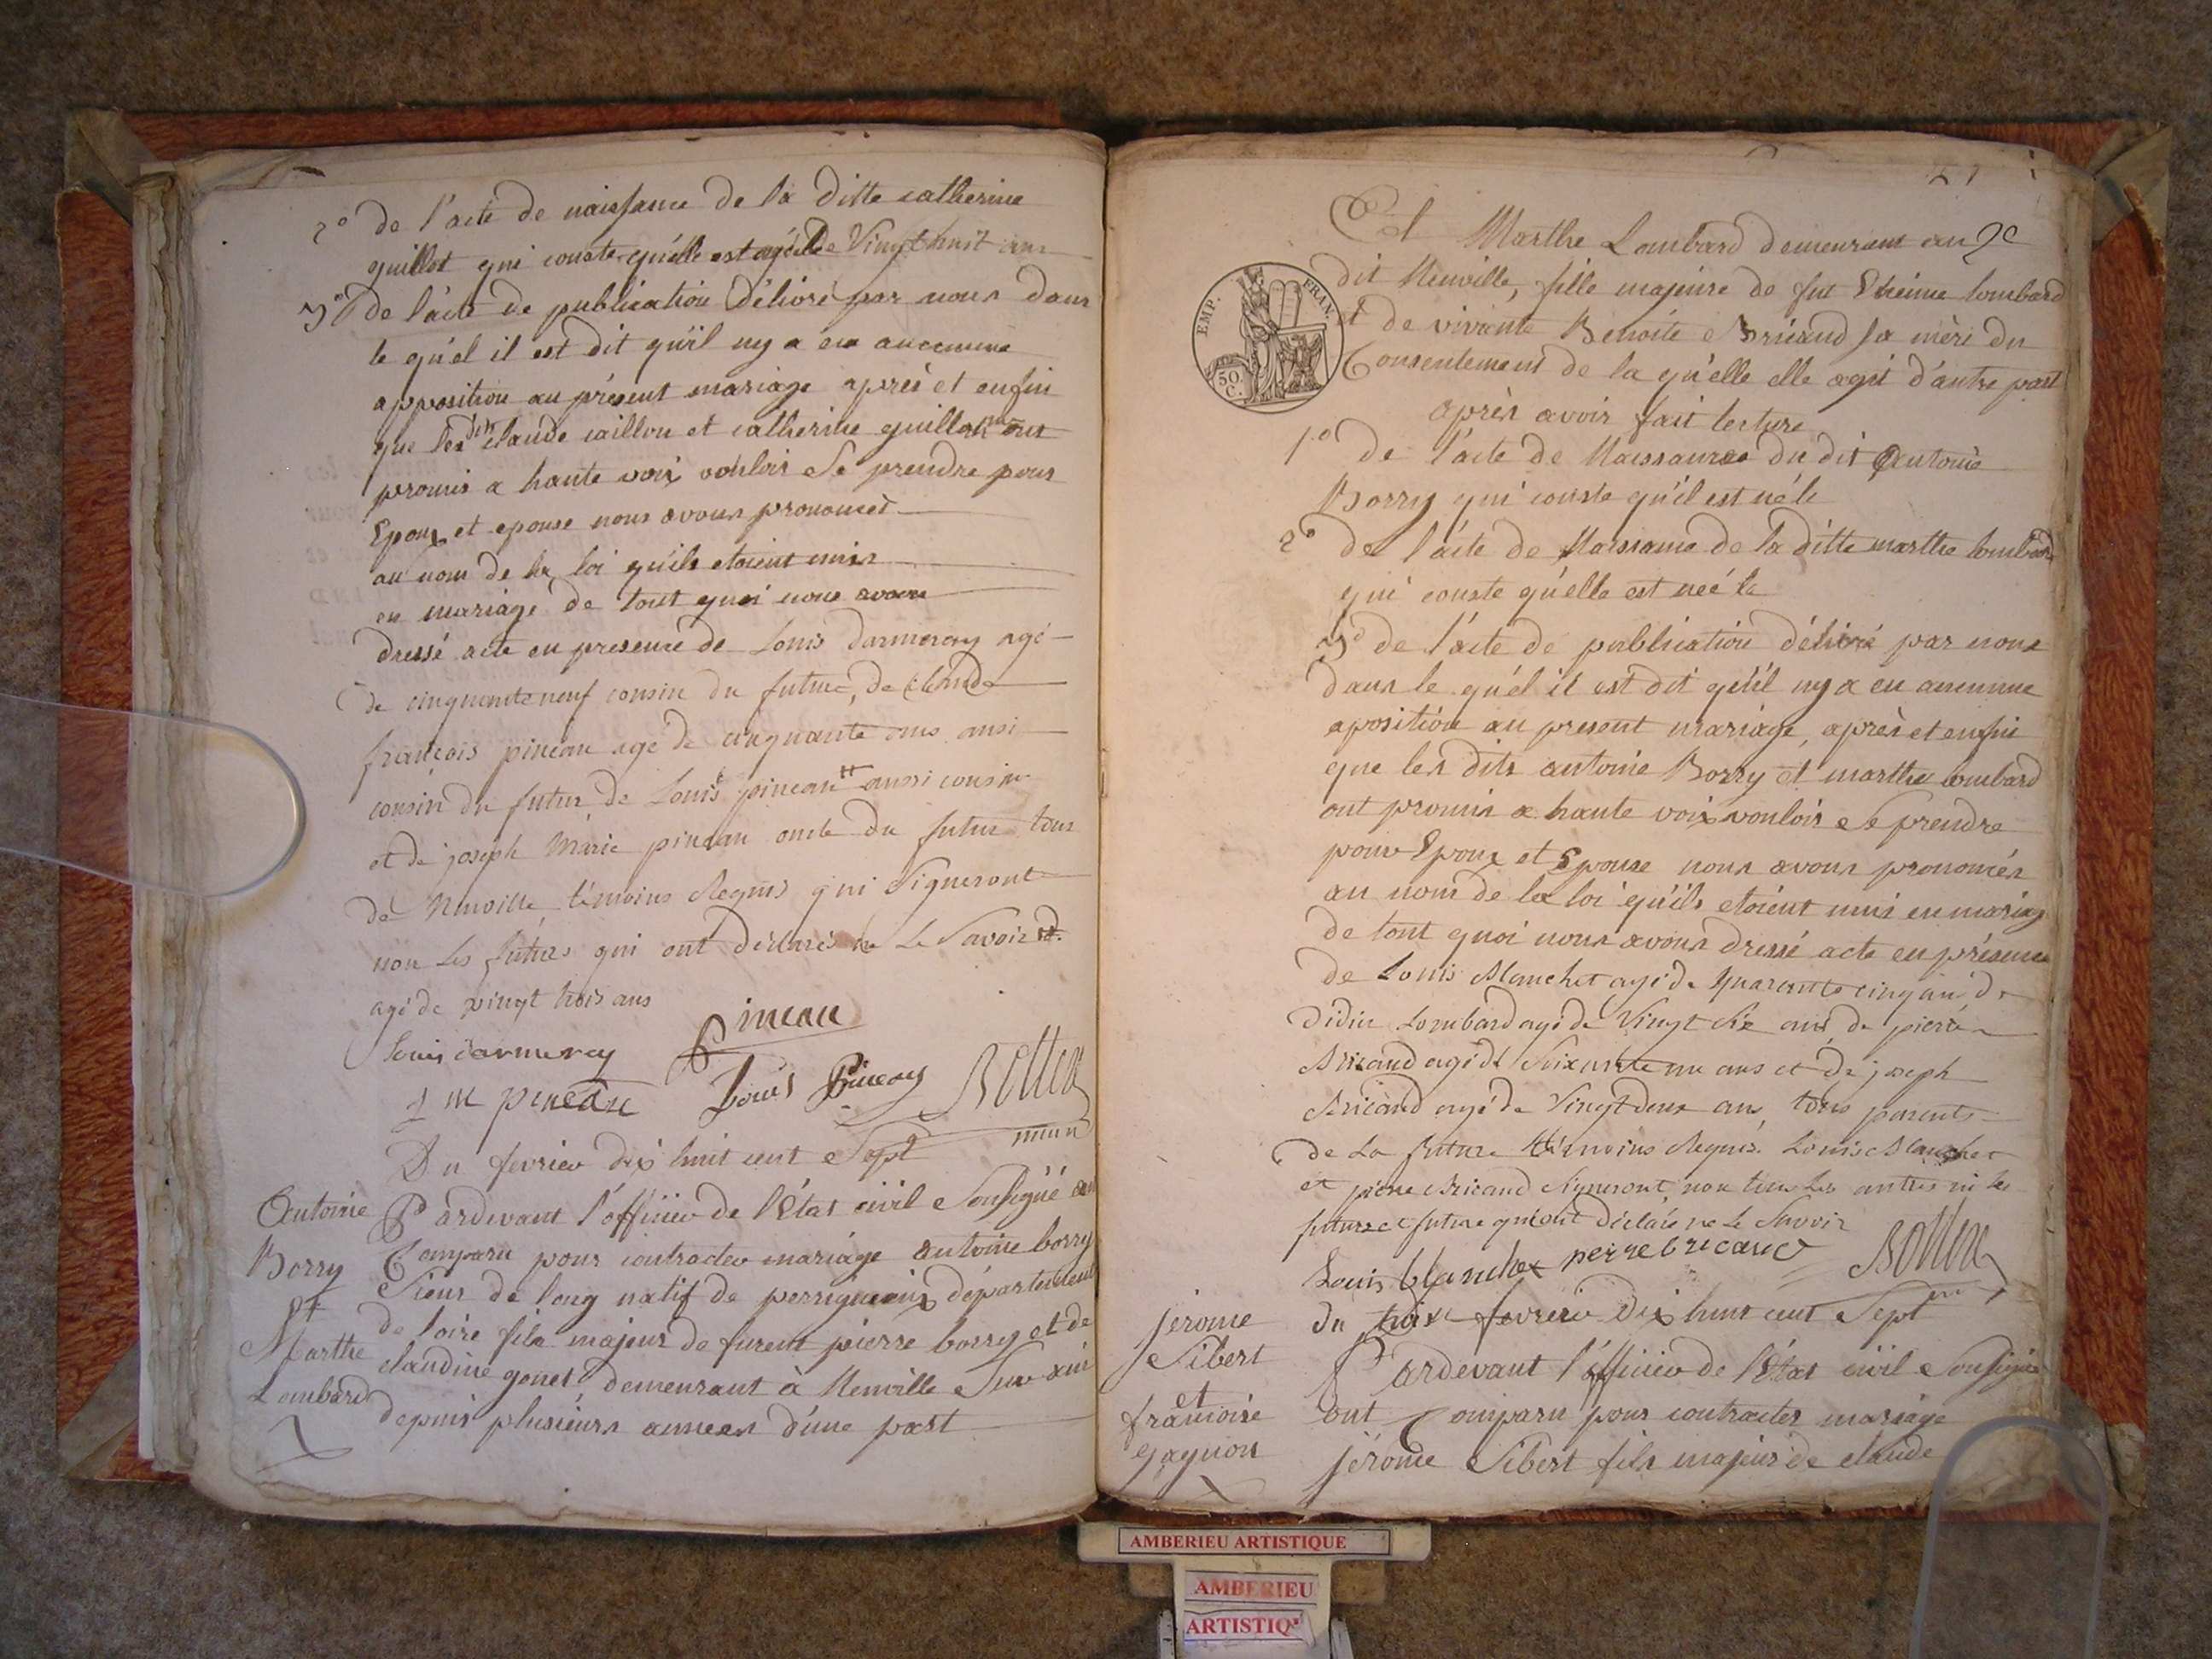 2° de l'acte de naissance de la ditte catherine
guillot qui conste qu'elle est agée de Vingt huit ans
3° de l'acte de publication délivré par nous dans
le qu'el il est dit qu'il ny a eu aucunne
apposition au présent mariage après et enfin
que les dits claude caillon et catherine guillot ont
promis a haute voix vouloir se prendre pour
Epoux et epouse nous avons prononcés
au nom de la loi qu'ils etoient unis
en mariage de tout quoi nous avons
dressé acte en presence de Louis darmeray agé
de cinquante neuf cousin du futur, de claude
françois pineau agé de cinquante ans aussi
cousin du futur de Louis pineau # aussi cousin
et de joseph Marie pineau oncle du futur tous
de Neuville témoins Requis qui Signeront
non les futurs qui ont déclarés ne Le Savoir #
agé de vingt trois ans
Pineau
Louis darmeray
j m pineau Louis Pineau Bottex
maire
Du fevrier dix huit cent Sept
Antoine
Borry
et
Marthe
Lombard
Pardevant l'officier de l'Etat civil Soussigné ont
Comparu pour contracter mariage antoine borry
Sieur de long natif de perrigneux département
de loire fils majeur de furent pierre borry et de
claudine gonet demeurant à Neuville Sur ain
depuis plusieurs annees d'une part
21
Et Marthe Lombard demeurant au
dit Neuville, fille majeure de fut Etienne lombard
EMP. FRAN.
50 C.
et de vivante Benoite Bricand sa mère du
Consentement de la qu'elle elle agit d'autre part
après avoir fait lecture
1° de l'acte de Naissance du dit Antoine
Borry qui conste qu'il est né le
2° de l'acte de Naissance de la ditte marthe lombard
qui conste qu'elle est neé le
3° de l'acte de publication délivré par nous
dans le qu'el il est dit qu'il ny a eu aucunne
aposition au present mariage, après et enfin
que les dits antoine Borry et marthe lombard
ont promis a haute voix vouloir Se prendre
pour Epoux et Epouse nous avons prononcés
au nom de la loi qu'ils etoient unis en mariage
de tout quoi nous avons dressé acte en présence
de Louis Blanchet agé de quarante cinq ans de
didier Lombard agé de Vingt Six ans de pierre
Bricand agé de Soixante un ans et de joseph
Bricand agé de Vingt deux ans, tous parents
de La future témoins Requis. Louis Blanchet
et pierre Bricand Signeront, non tous Les autres ni les
futurs et future qui ont déclaré ne Le Savoir
Louis blanchet pierre bricand Bottex
jerome
Sibert
et
francoise
gagnon
du trois fevrier dix huit cent Sept
Pardevant l'officier de l'Etat civil Soussigné
ont Comparu pour contracter mariage
jérome Sibert fils majeur de claude
AMBERIEU ARTISTIQUE
AMBERIEU
ARTISTIQ